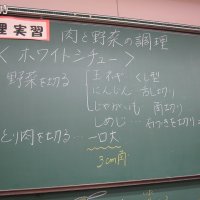 理実習
肉と野菜の調理
＜ホワイトシチュー＞
野菜を切る
玉ネギ くし型
にんじん 乱切り
じゃがいも 角切り
しめじ… 石づきを切り
とり肉を切る…一口大
3cm角